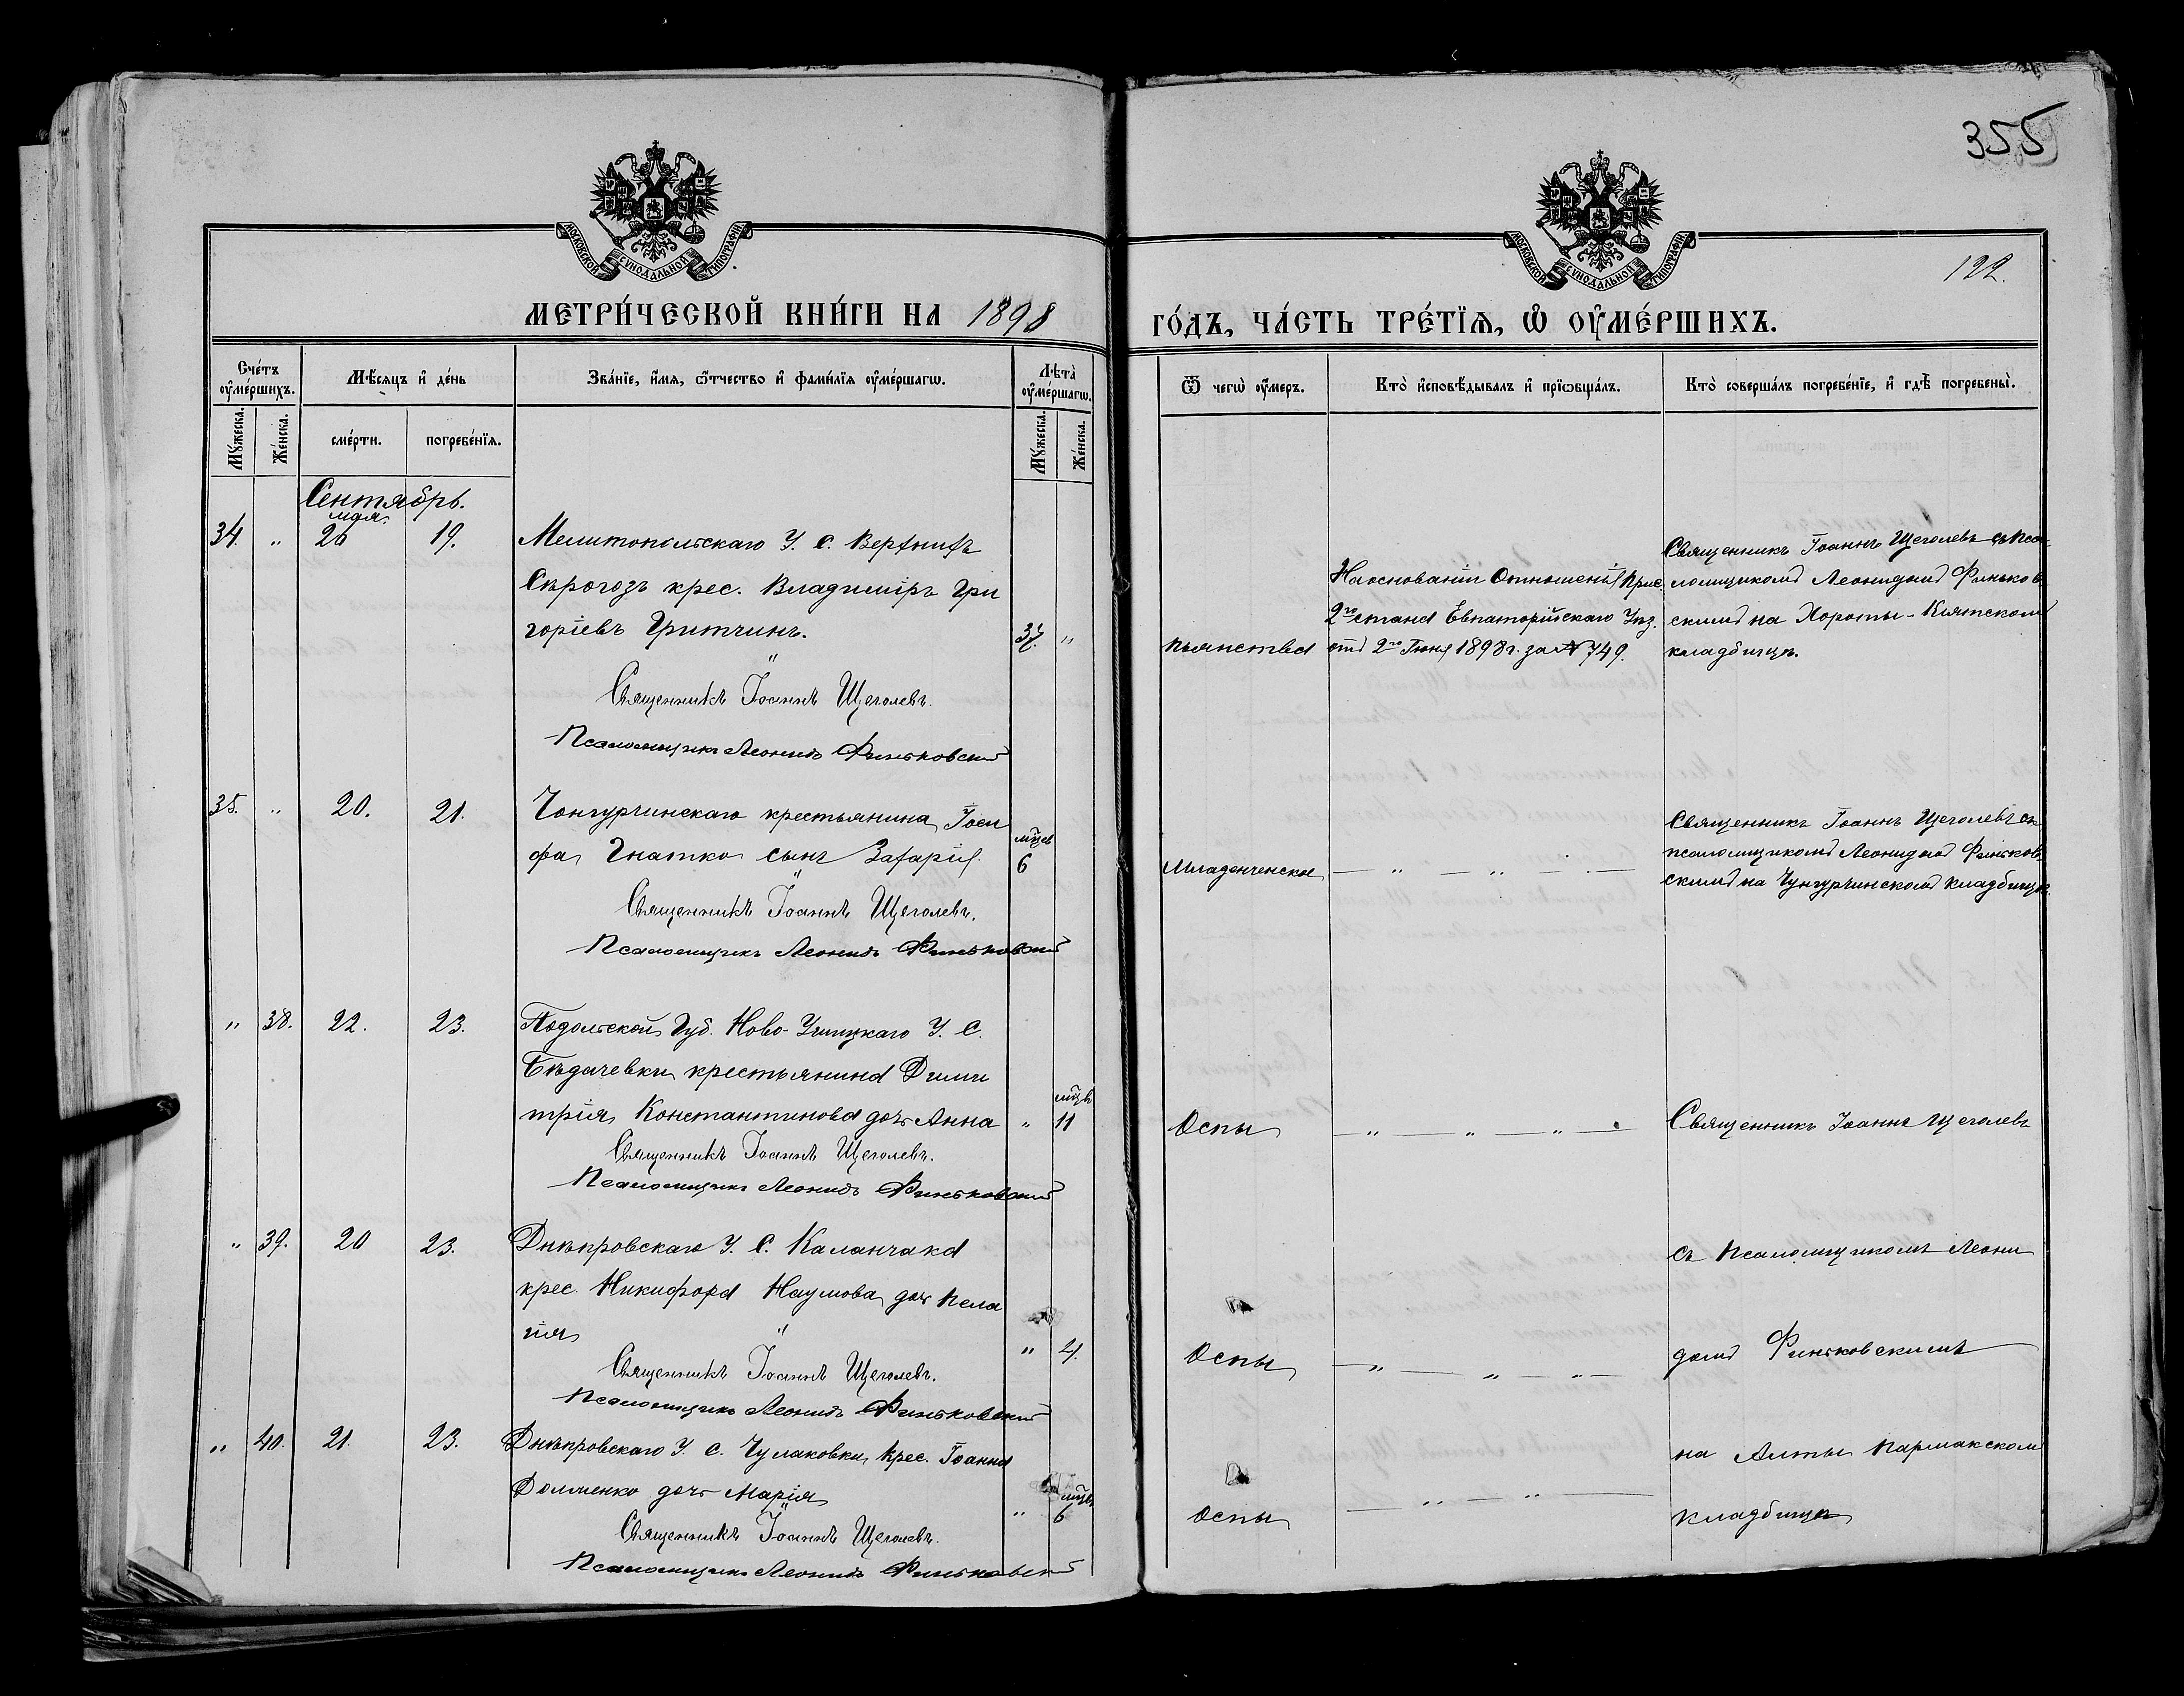 355
МОСКОВСКОЙ СѴНОДАЛЬНОЙ ТИПОГРАФІИ
МОСКОВСКОЙ СѴНОДАЛЬНОЙ ТИПОГРАФІИ
122.
МЕТРИ́ЧЕСКОЙ КНИ́ГИ НА 1898
ГО́ДЪ, ЧА́СТЬ ТРЕ́ТІѦ, Ѡ҆ ОУ҆МЕ́РШИХЪ.
Сче́тъ оу҆ме́ршихъ.
Мѣ́сяцъ и҆ де́нь
Зва́нїе, и҆́мя, ѻ҆́тчество и҆ фами́лїя оу҆ме́ршагѡ.
Лѣта̀ оу҆ме́ршагѡ.
Ѿ чегѡ̀ оу҆́меръ.
Кто̀ и҆сповѣ́дывалъ и҆ прїѡбща́лъ.
Кто̀ соверша́лъ погребе́нїе, и҆ гдѣ̀ погребены̀.
Мꙋ́жеска.
Же́нска.
сме́рти.
погребе́нїя.
Мꙋ́жеска.
Же́нска.
Сентябрь.
мая.
34. „ 26 19. Мелитопольскаго У. С. Верхнихъ
Сѣрогозъ крес. Владиміръ Гри
горіевъ Гритчинъ. 37. „
Священникъ Іоаннъ Щеголевъ.
Псаломщикъ Леонидъ Финьковскій
пьянства
На основаніи Отношенія Прис.
2го стана Евпаторійскаго Уѣз.
отъ 2го Іюня 1898 г. за № 749.
Священникъ Іоаннъ Щеголевъ съ пса-
ломщикомъ Леонидомъ Финьков
скимъ на Хороты-Кіятскомъ
кладбищѣ.
35. „ 20. 21. Чонгурчинскаго крестьянина Іоси
фа Гнатко сынъ Захарія мцев 6
Священникъ Іоаннъ Щеголевъ.
Псаломщикъ Леонидъ Финьковскій
Младенческое — „ — „ — . —
Священникъ Іоаннъ Щеголевъ съ
псаломщикомъ Леонидомъ Финьков
скимъ на Чунгурчинскомъ кладбищѣ.
„ 38. 22. 23. Подольской Губ. Ново-Ушицкаго У. С.
крестьянина Дими
трія Константинова дочь Анна „ мцев 11
Священникъ Іоаннъ Щеголевъ.
Псаломщикъ Леонидъ Финьковскій
Оспы — „ — „ — „ —
Священникъ Іоаннъ Щеголевъ
„ 39. 20 23. Днѣпровскаго У. С. Каланчака
крес. Никифора Наумова дочь Пела
гія „ 4.
Священникъ Іоаннъ Щеголевъ.
Псаломщикъ Леонидъ Финьковскій
Оспы — „ — „ — „ —
съ Псаломщикомъ Леони
домъ Финьковскимъ
„ 40. 21. 23. Днѣпровскаго У. С. Чулаковки, крес. Іоанна
Долменко дочь Марія „ мцев 6
Священникъ Іоаннъ Щеголевъ.
Псаломщикъ Леонидъ Финьковскій
Оспы — „ — „ —
на Алты Пармакском
кладбищѣ